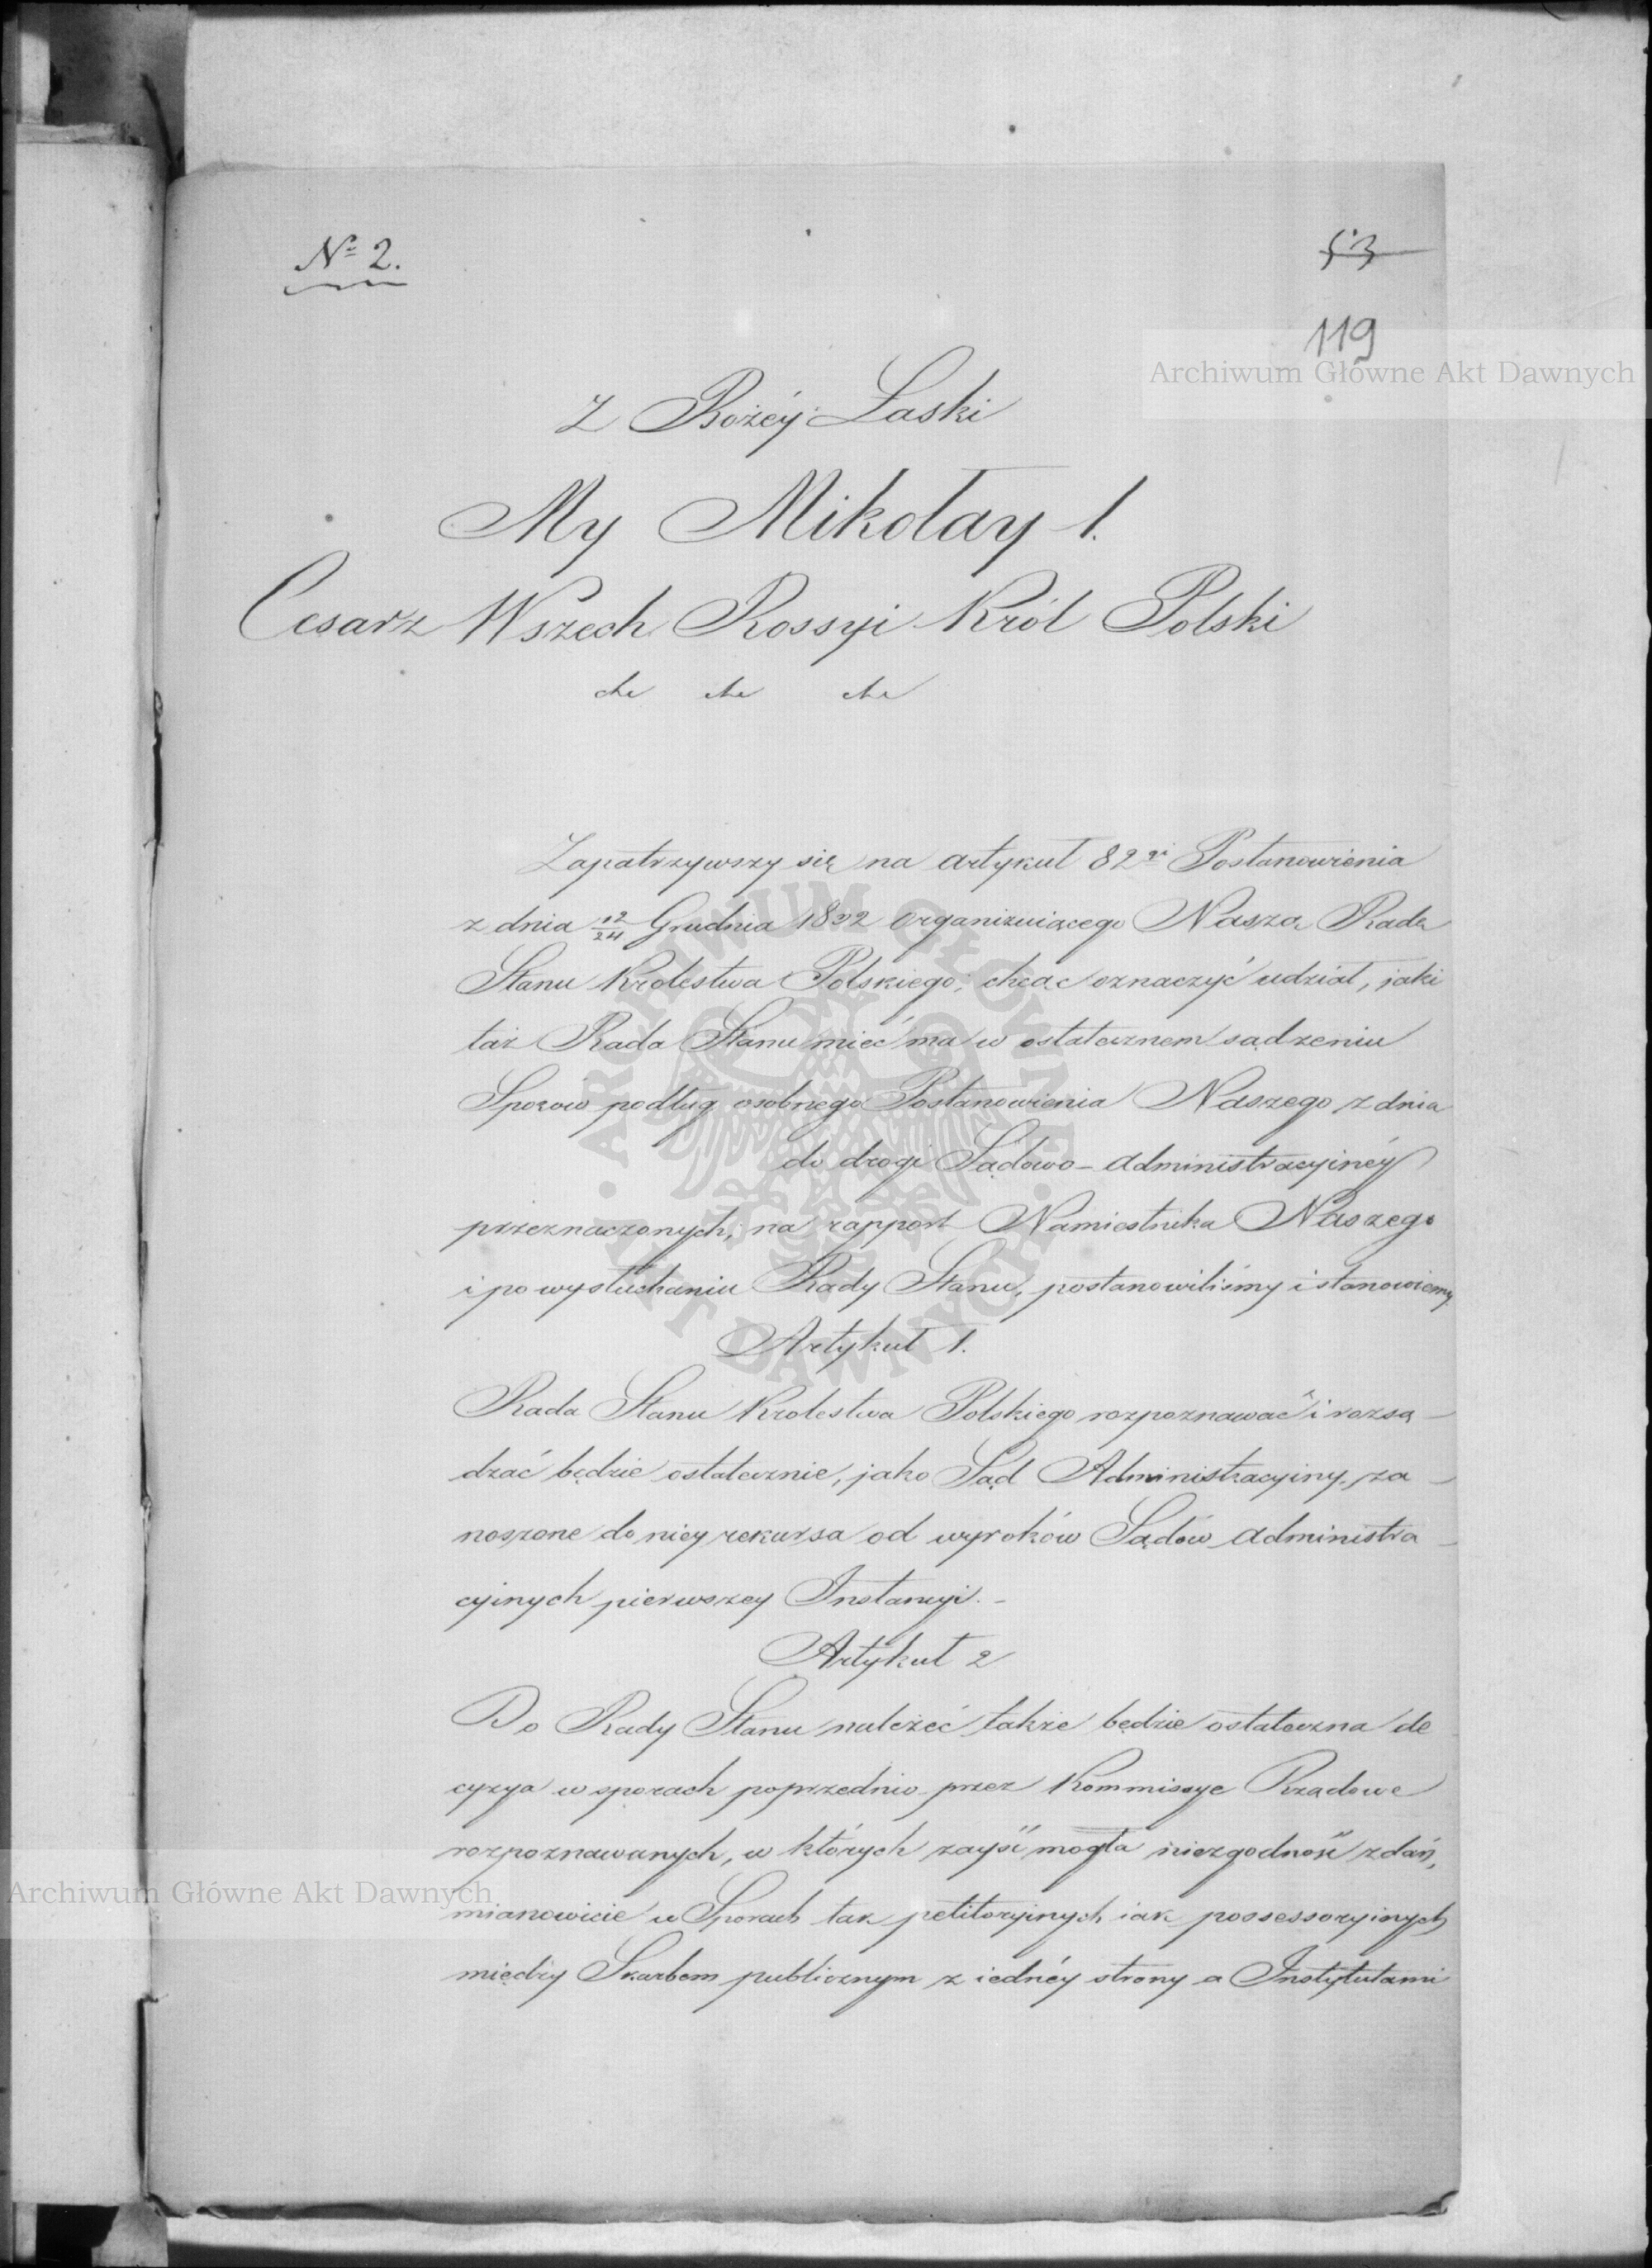 № 2.
53
119
Archiwum Główne Akt Dawnych
Z Bożéy Łaski
My Mikołay 1.
Cesarz Wszech Rossyi Król Polski
etc etc etc
Zapatrzywszy się na artykuł 82gi Postanowienia
z dnia 12/24 Grudnia 1832 organizuiącego Naszą Radę
Stanu Krolestwa Polskiego, chcąc oznaczyć udział, jaki
taż Rada Stanu mieć ma w ostatecznem sądzeniu
Sporów podług osobnego Postanowienia Naszego z dnia
do drogi Sądowo-administracyinéy
przeznaczonych, na rapport Namiestnika Naszego
i po wysłuchaniu Rady Stanu, postanowiliśmy i stanowiemy.
Artykuł 1.
Rada Stanu Krolestwa Polskiego rozpoznawać i rozsą-
dzać będzie ostatecznie, jako Sąd Administracyiny, za-
noszone do niey rekursa od wyroków Sądów administra-
cyinych pierwszey Instancyi.-
Artykuł 2
Do Rady Stanu należéć także będzie ostateczna de
cyzya w sporach poprzednio przez Kommissye Rządowe
rozpoznawanych, w których zayść mogła niezgodność zdań,
mianowicie w Sporach tak petitoryinych iak possessoryinych
między Skarbem publicznym z iednéy strony a Instytutami
Archiwum Główne Akt Dawnych
ARCHIWUM GŁÓWNE AKT DAWNYCH